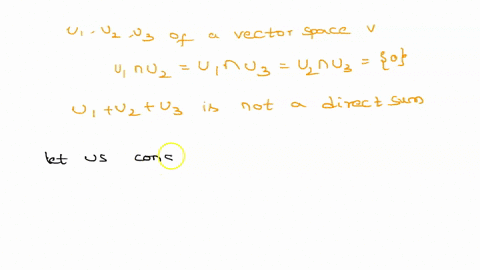 U₁, U₂, U₃ of a vector space V
U₁ ∩ U₂ = U₁ ∩ U₃ = U₂ ∩ U₃ = {0}
U₁ + U₂ + U₃ is not a direct sum
let us conc